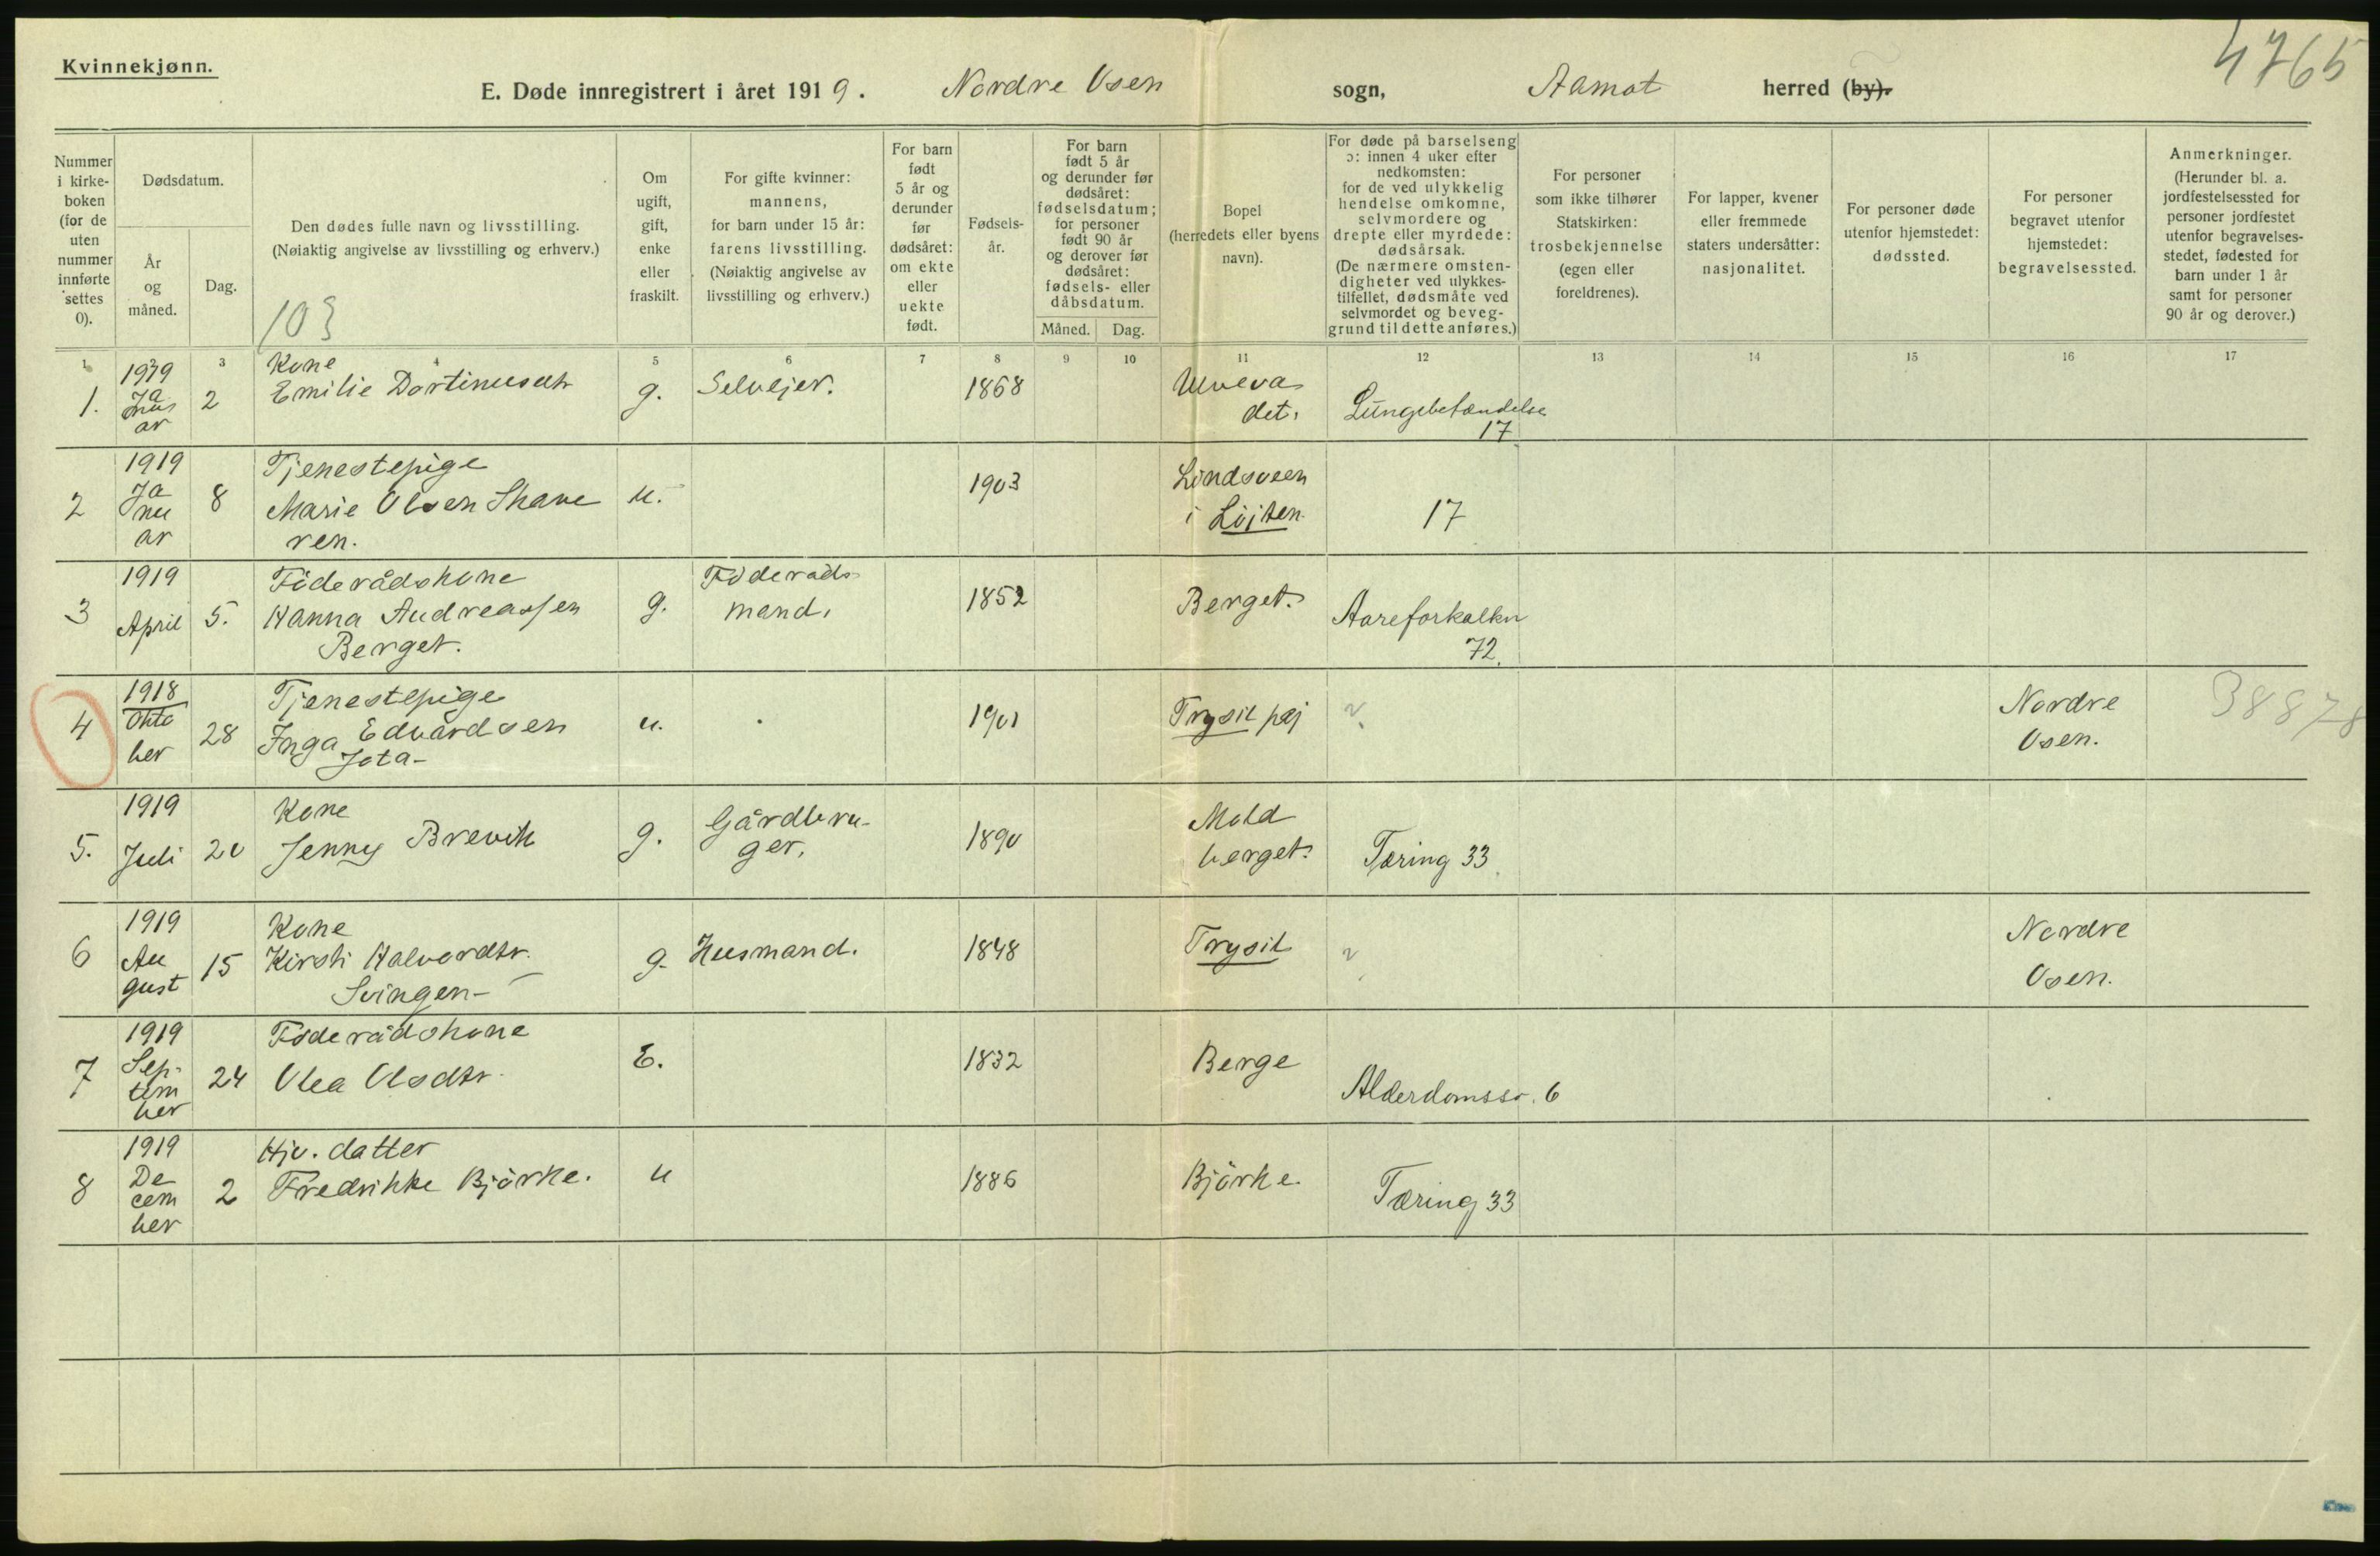 Kvinnekjønn.
4765
E. Døde innregistrert i året 1919. Nordre Osen sogn, Aamot herred (by).
Nummer i kirke-boken (for de uten nummer innførte settes 0).
Dødsdatum.
År og måned.
Dag.
Den dødes fulle navn og livsstilling.
(Nøiaktig angivelse av livsstilling og erhverv.)
103
Om ugift, gift, enke eller fraskilt.
For gifte kvinner: mannens, for barn under 15 år: farens livsstilling. (Nøiaktig angivelse av livsstilling og erhverv.)
For barn født 5 år og derunder før dødsåret: om ekte eller uekte født.
Fødsels-år.
For barn født 5 år og derunder før dødsåret: fødselsdatum; for personer født 90 år og derover før dødsåret: fødsels- eller dåbsdatum.
Måned. Dag.
Bopel (herredets eller byens navn).
For døde på barselseng ɔ: innen 4 uker efter nedkomsten: for de ved ulykkelig hendelse omkomne, selvmordere og drepte eller myrdede: dødsårsak. (De nærmere omsten-digheter ved ulykkes-tilfellet, dødsmåte ved selvmordet og beveg-grund til dette anføres.)
For personer som ikke tilhører Statskirken: trosbekjennelse (egen eller foreldrenes).
For lapper, kvener eller fremmede staters undersåtter: nasjonalitet.
For personer døde utenfor hjemstedet: dødssted.
For personer begravet utenfor hjemstedet: begravelsessted.
Anmerkninger. (Herunder bl. a. jordfestelsessted for personer jordfestet utenfor begravelses-stedet, fødested for barn under 1 år samt for personer 90 år og derover.)
1 2 3 4 5 6 7 8 9 10 11 12 13 14 15 16 17
1. 1919 Januar 2 Kone Emilie g. Selvejer. 1868 det. Lungebetændelse 17
2 1919 Januar 8 Tjenestepige Marie Olsen Skaveren. u. 1903 Lindsveen i Löiten 17
3 1919 April 5. Föderådskone Hanna Andreassen Berget. g. Föderådsmand. 1852 Berget. Aareforkalkn 72.
4 1918 Oktober 28 Tjenestepige Inga Edvardsen Jota- u. 1901 Trysil pgj ? Nordre Osen. 38878
5. 1919 Juli 20 Kone Jenny Brevik g. Gårdbruger. 1890 Moldberget. Tæring 33
6 1919 August 15 Kone Kirsti Halvordtr. Svingen- g. Husmand. 1848 Trysil ? Nordre Osen.
7 1919 September 24 Föderådskone Olea Olsdtr. E. 1832 Berge Alderdomssv. 6
8 1919 December 2 Hjv. datter Fredrikke Björke. u 1886 Björke. Tæring 33